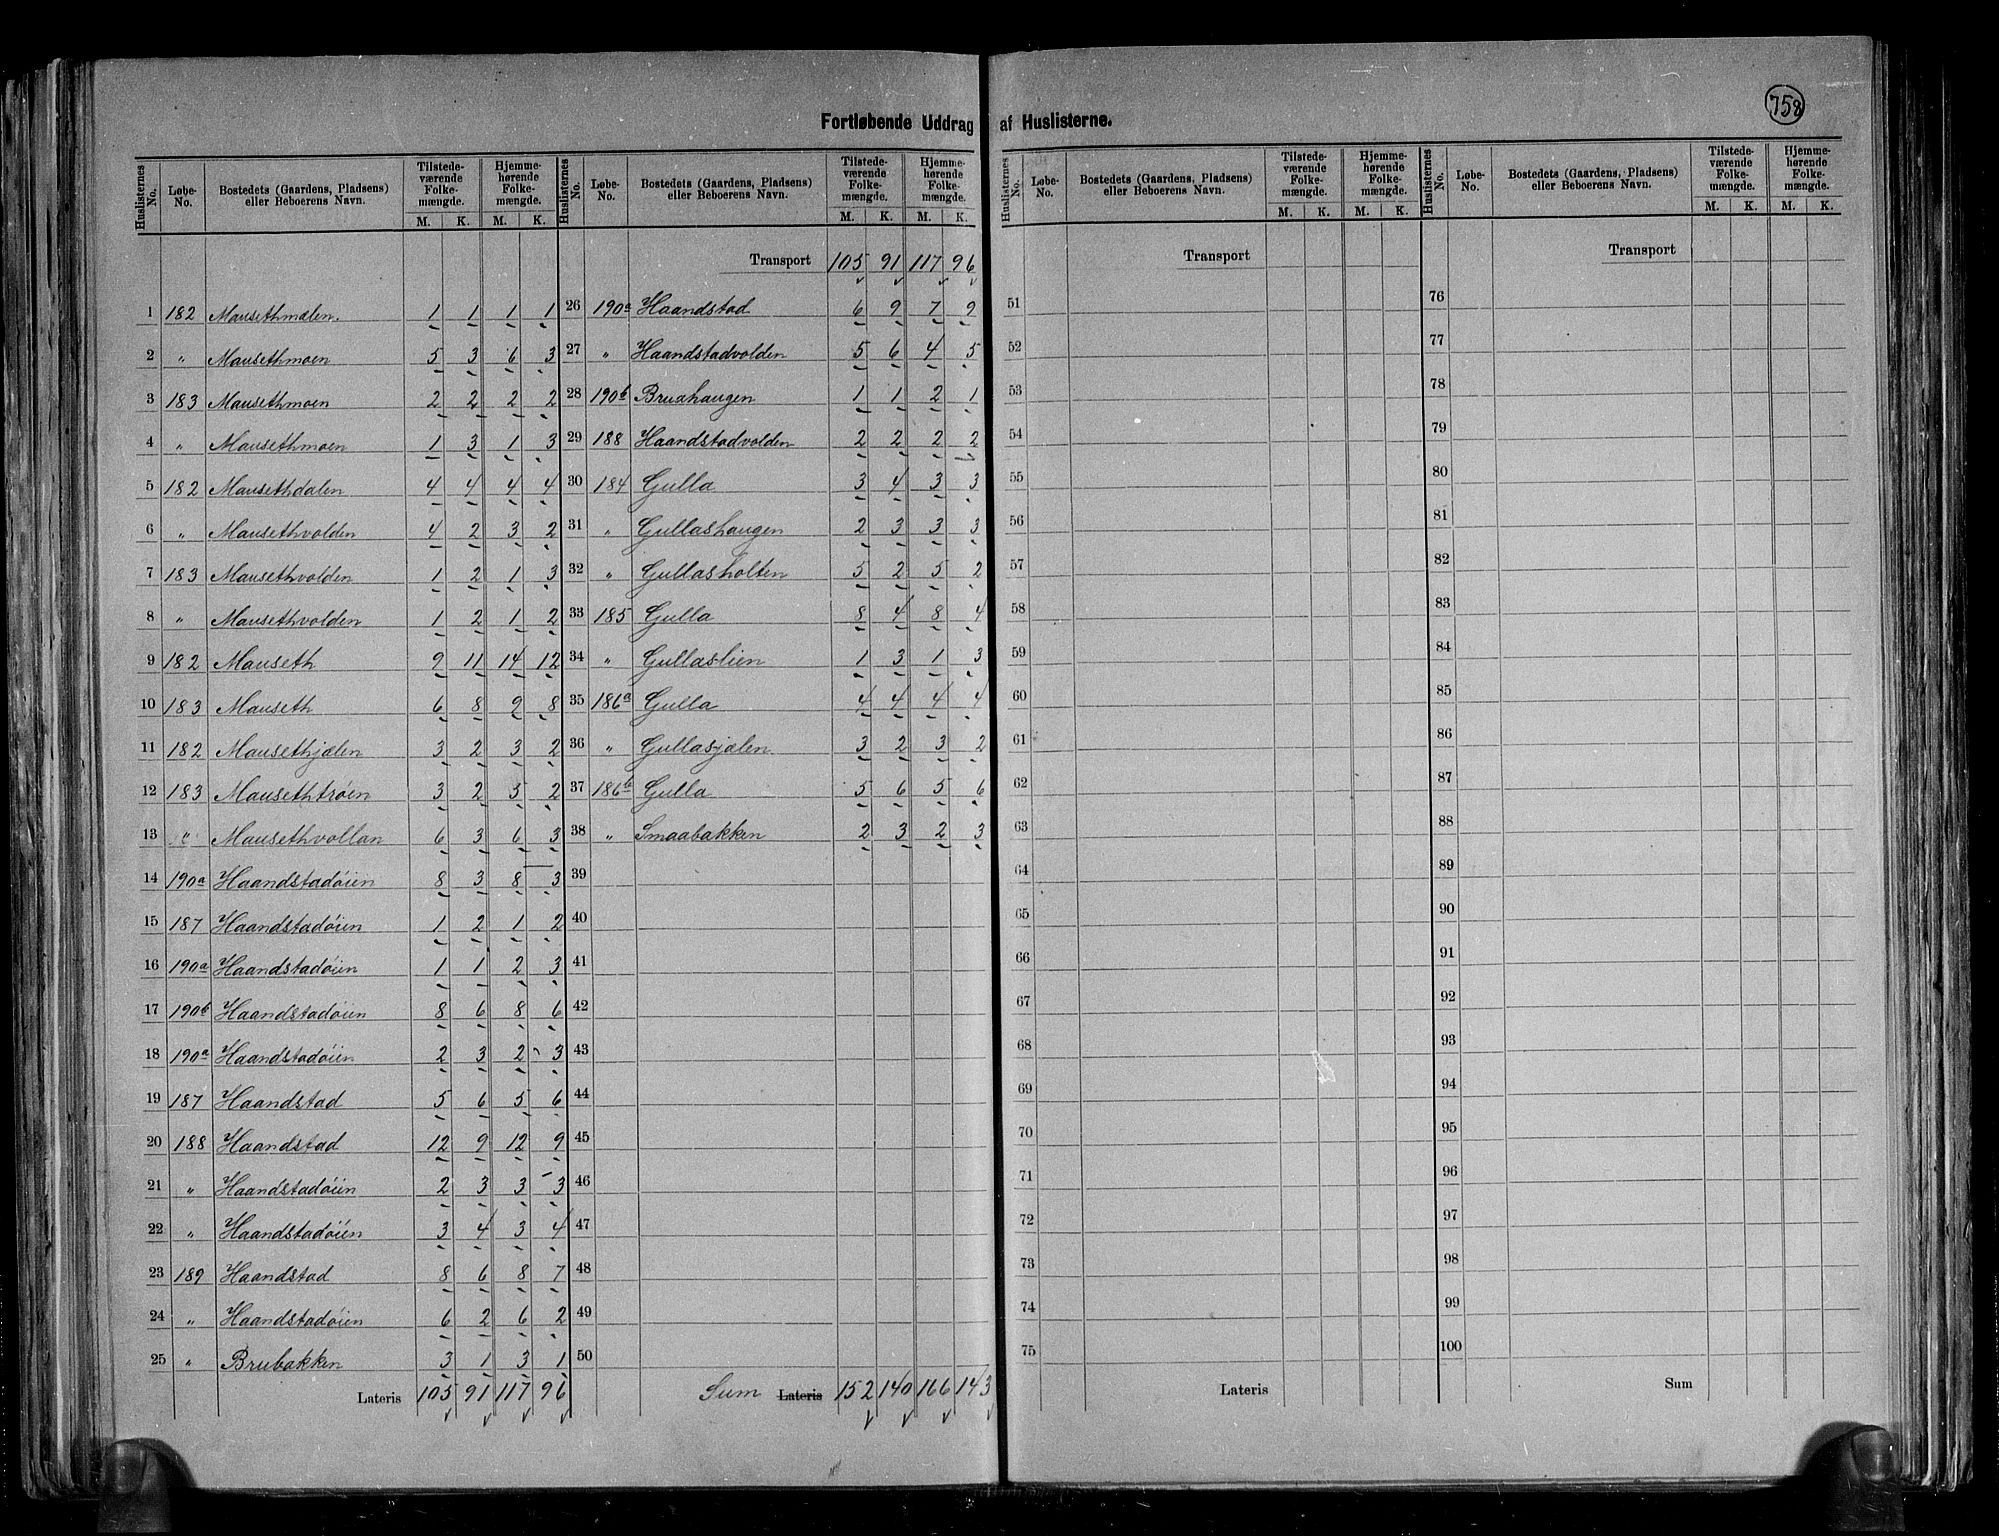 758
Fortløbende Uddrag af Huslisterne.
Huslisternes No. Løbe-No. Bostedets (Gaardens, Pladsens) eller Beboerens Navn. Tilstedeværende Folkemængde. M. K. Hjemmehørende Folkemængde. M. K.
1 182 Mausethmælen. 1 1 1 1
2 " Mausethmoen 5 3 6 3
3 183 Mausethmoen 2 2 2 2
4 " Mausethmoen 1 3 1 3
5 182 Mausethdalen 4 4 4 4
6 " Mausethvolden 4 2 3 2
7 183 Mausethvolden 1 2 1 3
8 " Mausethvolden 1 2 1 2
9 182 Mauseth 9 11 14 12
10 183 Mauseth 6 8 9 8
11 182 Mausethjælen 3 2 3 2
12 183 Mausethtrøen 3 2 3 2
13 " Mausethvollan 6 3 6 3
14 190a Haandstadøien 8 3 8 3
15 187 Haandstadøien 1 2 1 2
16 190a Haandstadøien 1 1 2 3
17 190b Haandstadøien 8 6 8 6
18 190a Haandstadøien 2 3 2 3
19 187 Haandstad 5 6 5 6
20 188 Haandstad 12 9 12 9
21 " Haandstadøien 2 3 3 3
22 " Haandstadøien 3 4 3 4
23 189 Haandstad 8 6 8 7
24 " Haandstadøien 6 2 6 2
25 " Brubakken 3 1 3 1
Lateris 105 91 117 96
Huslisternes No. Løbe-No. Bostedets (Gaardens, Pladsens) eller Beboerens Navn. Tilstedeværende Folkemængde. M. K. Hjemmehørende Folkemængde. M. K.
Transport 105 91 117 96
26 190a Haandstad 6 9 7 9
27 " Haandstadvolden 5 6 4 5
28 190b Bruahaugen 1 1 2 1
29 188 Haandstadvolden 2 2 2 2
30 184 Gulla 3 4 3 3
31 " Gullashaugen 2 3 3 3
32 " Gullasholten 5 2 5 2
33 185 Gulla 8 4 8 4
34 " Gullaslien 1 3 1 3
35 186a Gulla 4 4 4 4
36 " Gullasjælen 3 2 3 2
37 186b Gulla 5 6 5 6
38 " Smaabakken 2 3 2 3
39
40
41
42
43
44
45
46
47
48
49
50
Sum Lateris 152 140 166 143
Huslisternes No. Løbe-No. Bostedets (Gaardens, Pladsens) eller Beboerens Navn. Tilstedeværende Folkemængde. M. K. Hjemmehørende Folkemængde. M. K.
Transport
51
52
53
54
55
56
57
58
59
60
61
62
63
64
65
66
67
68
69
70
71
72
73
74
75
Lateris
Huslisternes No. Løbe-No. Bostedets (Gaardens, Pladsens) eller Beboerens Navn. Tilstedeværende Folkemængde. M. K. Hjemmehørende Folkemængde. M. K.
Transport
76
77
78
79
80
81
82
83
84
85
86
87
88
89
90
91
92
93
94
95
96
97
98
99
100
Sum